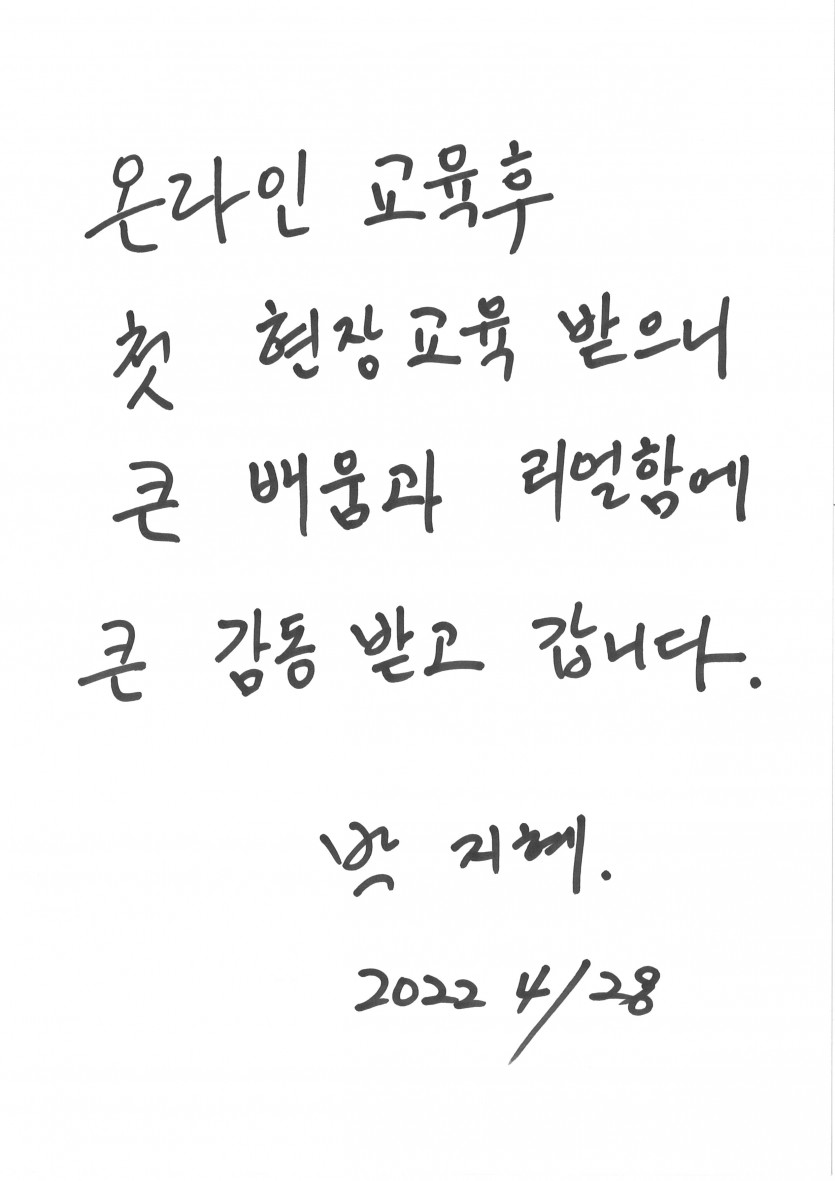 온라인 교육후
첫 현장교육 받으니
큰 배움과 리얼함에
큰 감동 받고 갑니다.
박 지혜.
2022 4/28